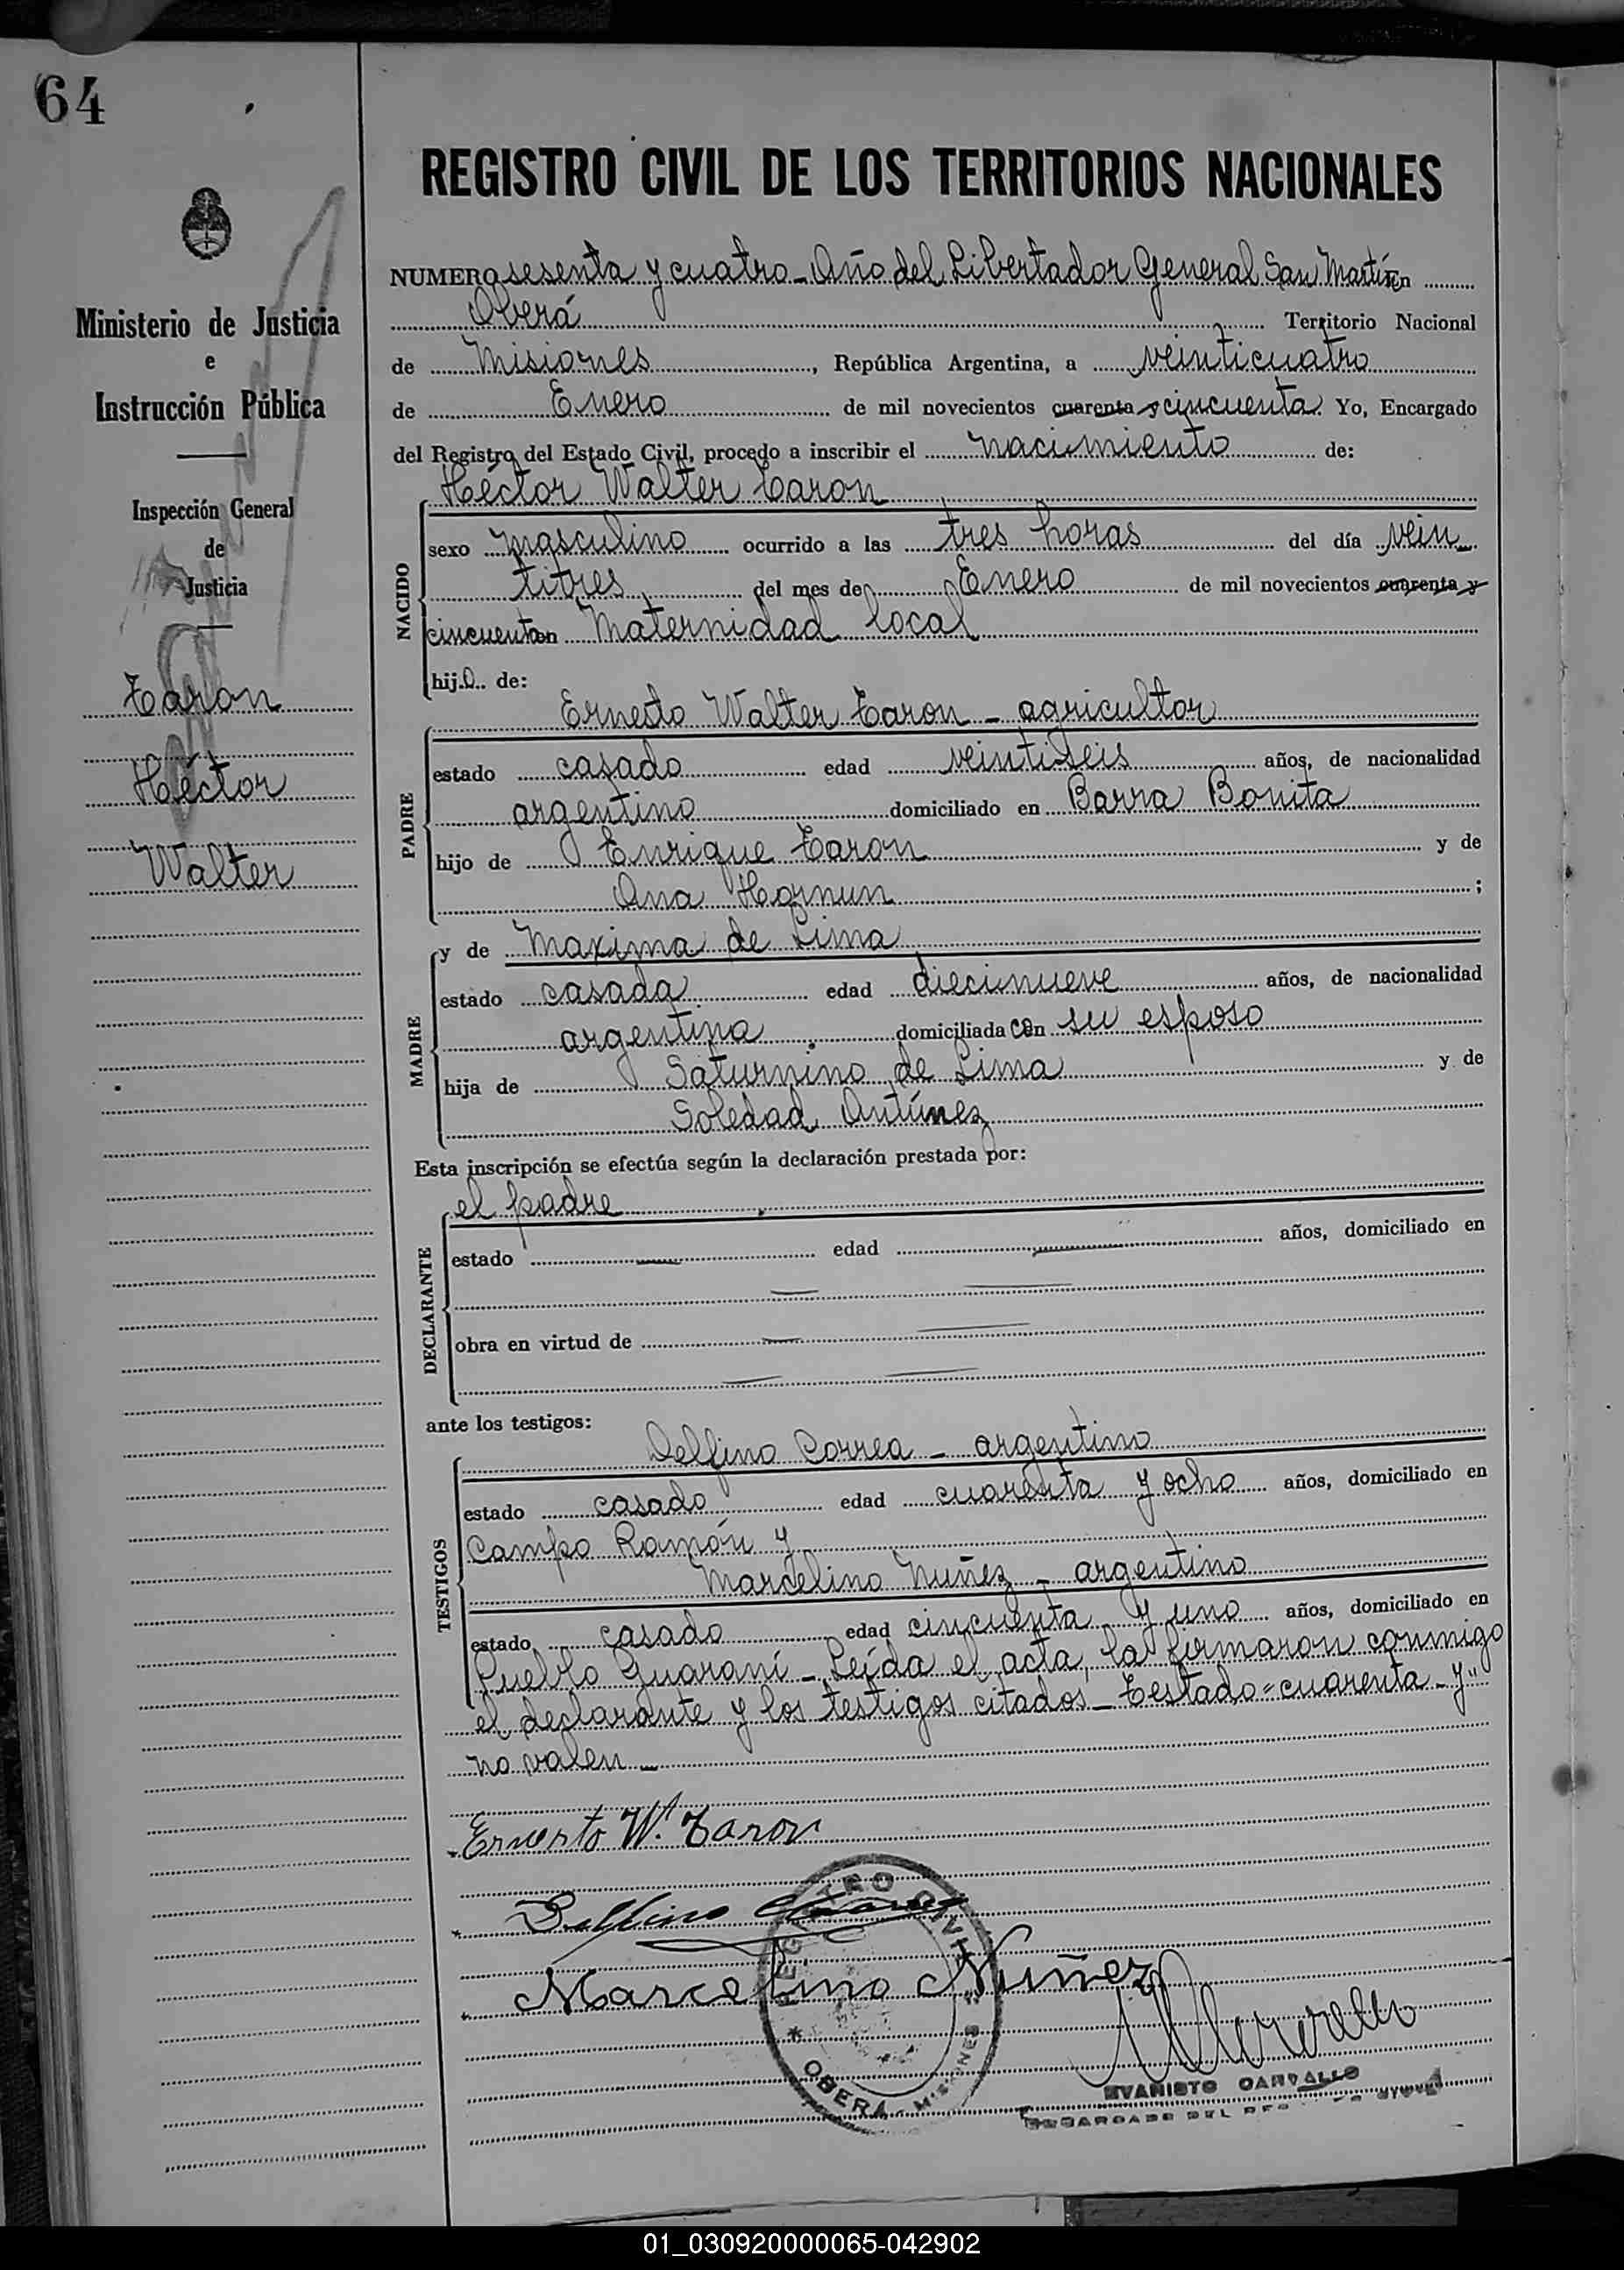 64
REGISTRO CIVIL DE LOS TERRITORIOS NACIONALES
Ministerio de Justicia
e
Instrucción Pública
Inspección General
de
Justicia
Taron
Héctor
Walter
NUMERO sesenta y cuatro - Año del Libertador General San Martín En
Oberá Territorio Nacional
de Misiones, República Argentina, a veinticuatro
de Enero de mil novecientos cuarenta y cincuenta. Yo, Encargado
del Registro del Estado Civil, procedo a inscribir el nacimiento de:
Héctor Walter Taron
NACIDO
sexo masculino ocurrido a las tres horas del día vein
titres del mes de Enero de mil novecientos cuarenta y
cincuenta en Maternidad local
hijo de:
Ernesto Walter Taron - agricultor
PADRE
estado casado edad veintiseis años, de nacionalidad
argentino domiciliado en Barra Bonita
hijo de Enrique Taron y de
Ana ;
y de Maxima de Lima
MADRE
estado casada edad diecinueve años, de nacionalidad
argentina domiciliada con su esposo
hija de Saturnino de Lima y de
Soledad Antúnez
Esta inscripción se efectúa según la declaración prestada por:
el padre
DECLARANTE
estado edad años, domiciliado en
obra en virtud de
ante los testigos:
Delfino Correa - argentino
TESTIGOS
estado casado edad cuarenta y ocho años, domiciliado en
Campo Ramón y
Marcelino Nuñez - argentino
estado casado edad cincuenta y uno años, domiciliado en
Pueblo Guaraní - Leída el acta, la firmaron conmigo
el declarante y los testigos citados - Testado="cuarenta - y"
no valen -
Ernesto W. Taron
Delfino Correa
Marcelino Nuñez
REGISTRO CIVIL
* OBERA - MISIONES
EVARISTO CARVALLO
ENCARGADO DEL REGISTRO CIVIL
01_030920000065-042902